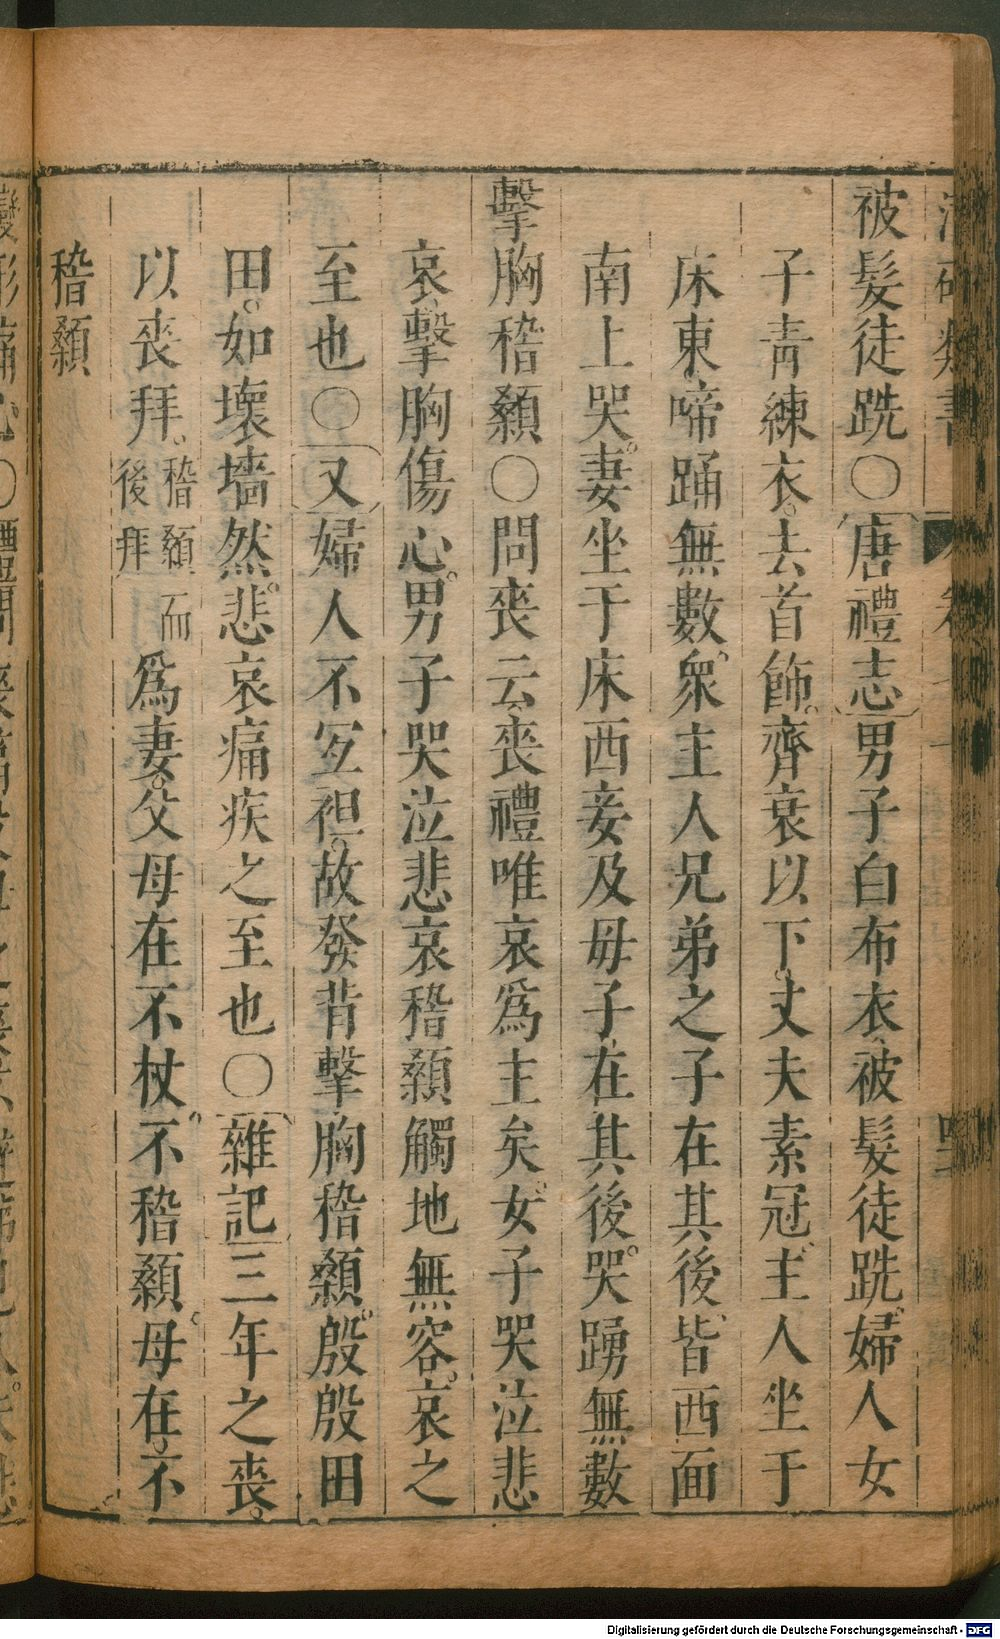 被髮徒跣○唐禮志男子白布衣、被髮徒跣、婦人女
子靑練衣。去首飾。齊衰以下。丈夫素冠、主人坐于
床東、啼踊無數、衆主人兄弟之子在其後、皆西面
南上哭。妻坐于床西妾及母子、在其後。哭踴無數
擊胸稽顙○問喪云、喪禮唯哀爲主矣。女子哭泣悲
哀、擊胸傷心。男子哭泣悲哀稽顙觸地無容。哀之
至也○又婦人不宐袒。故發背擊胸稽顙。殷殷田
田。如壞墻然。悲哀痛疾之至也○雜記三年之喪。
以喪拜。稽顙而後拜爲妻。父母在不杖。不稽顙。母在、不
稽顙
Digitalisierung gefördert durch die Deutsche Forschungsgemeinschaft - DFG